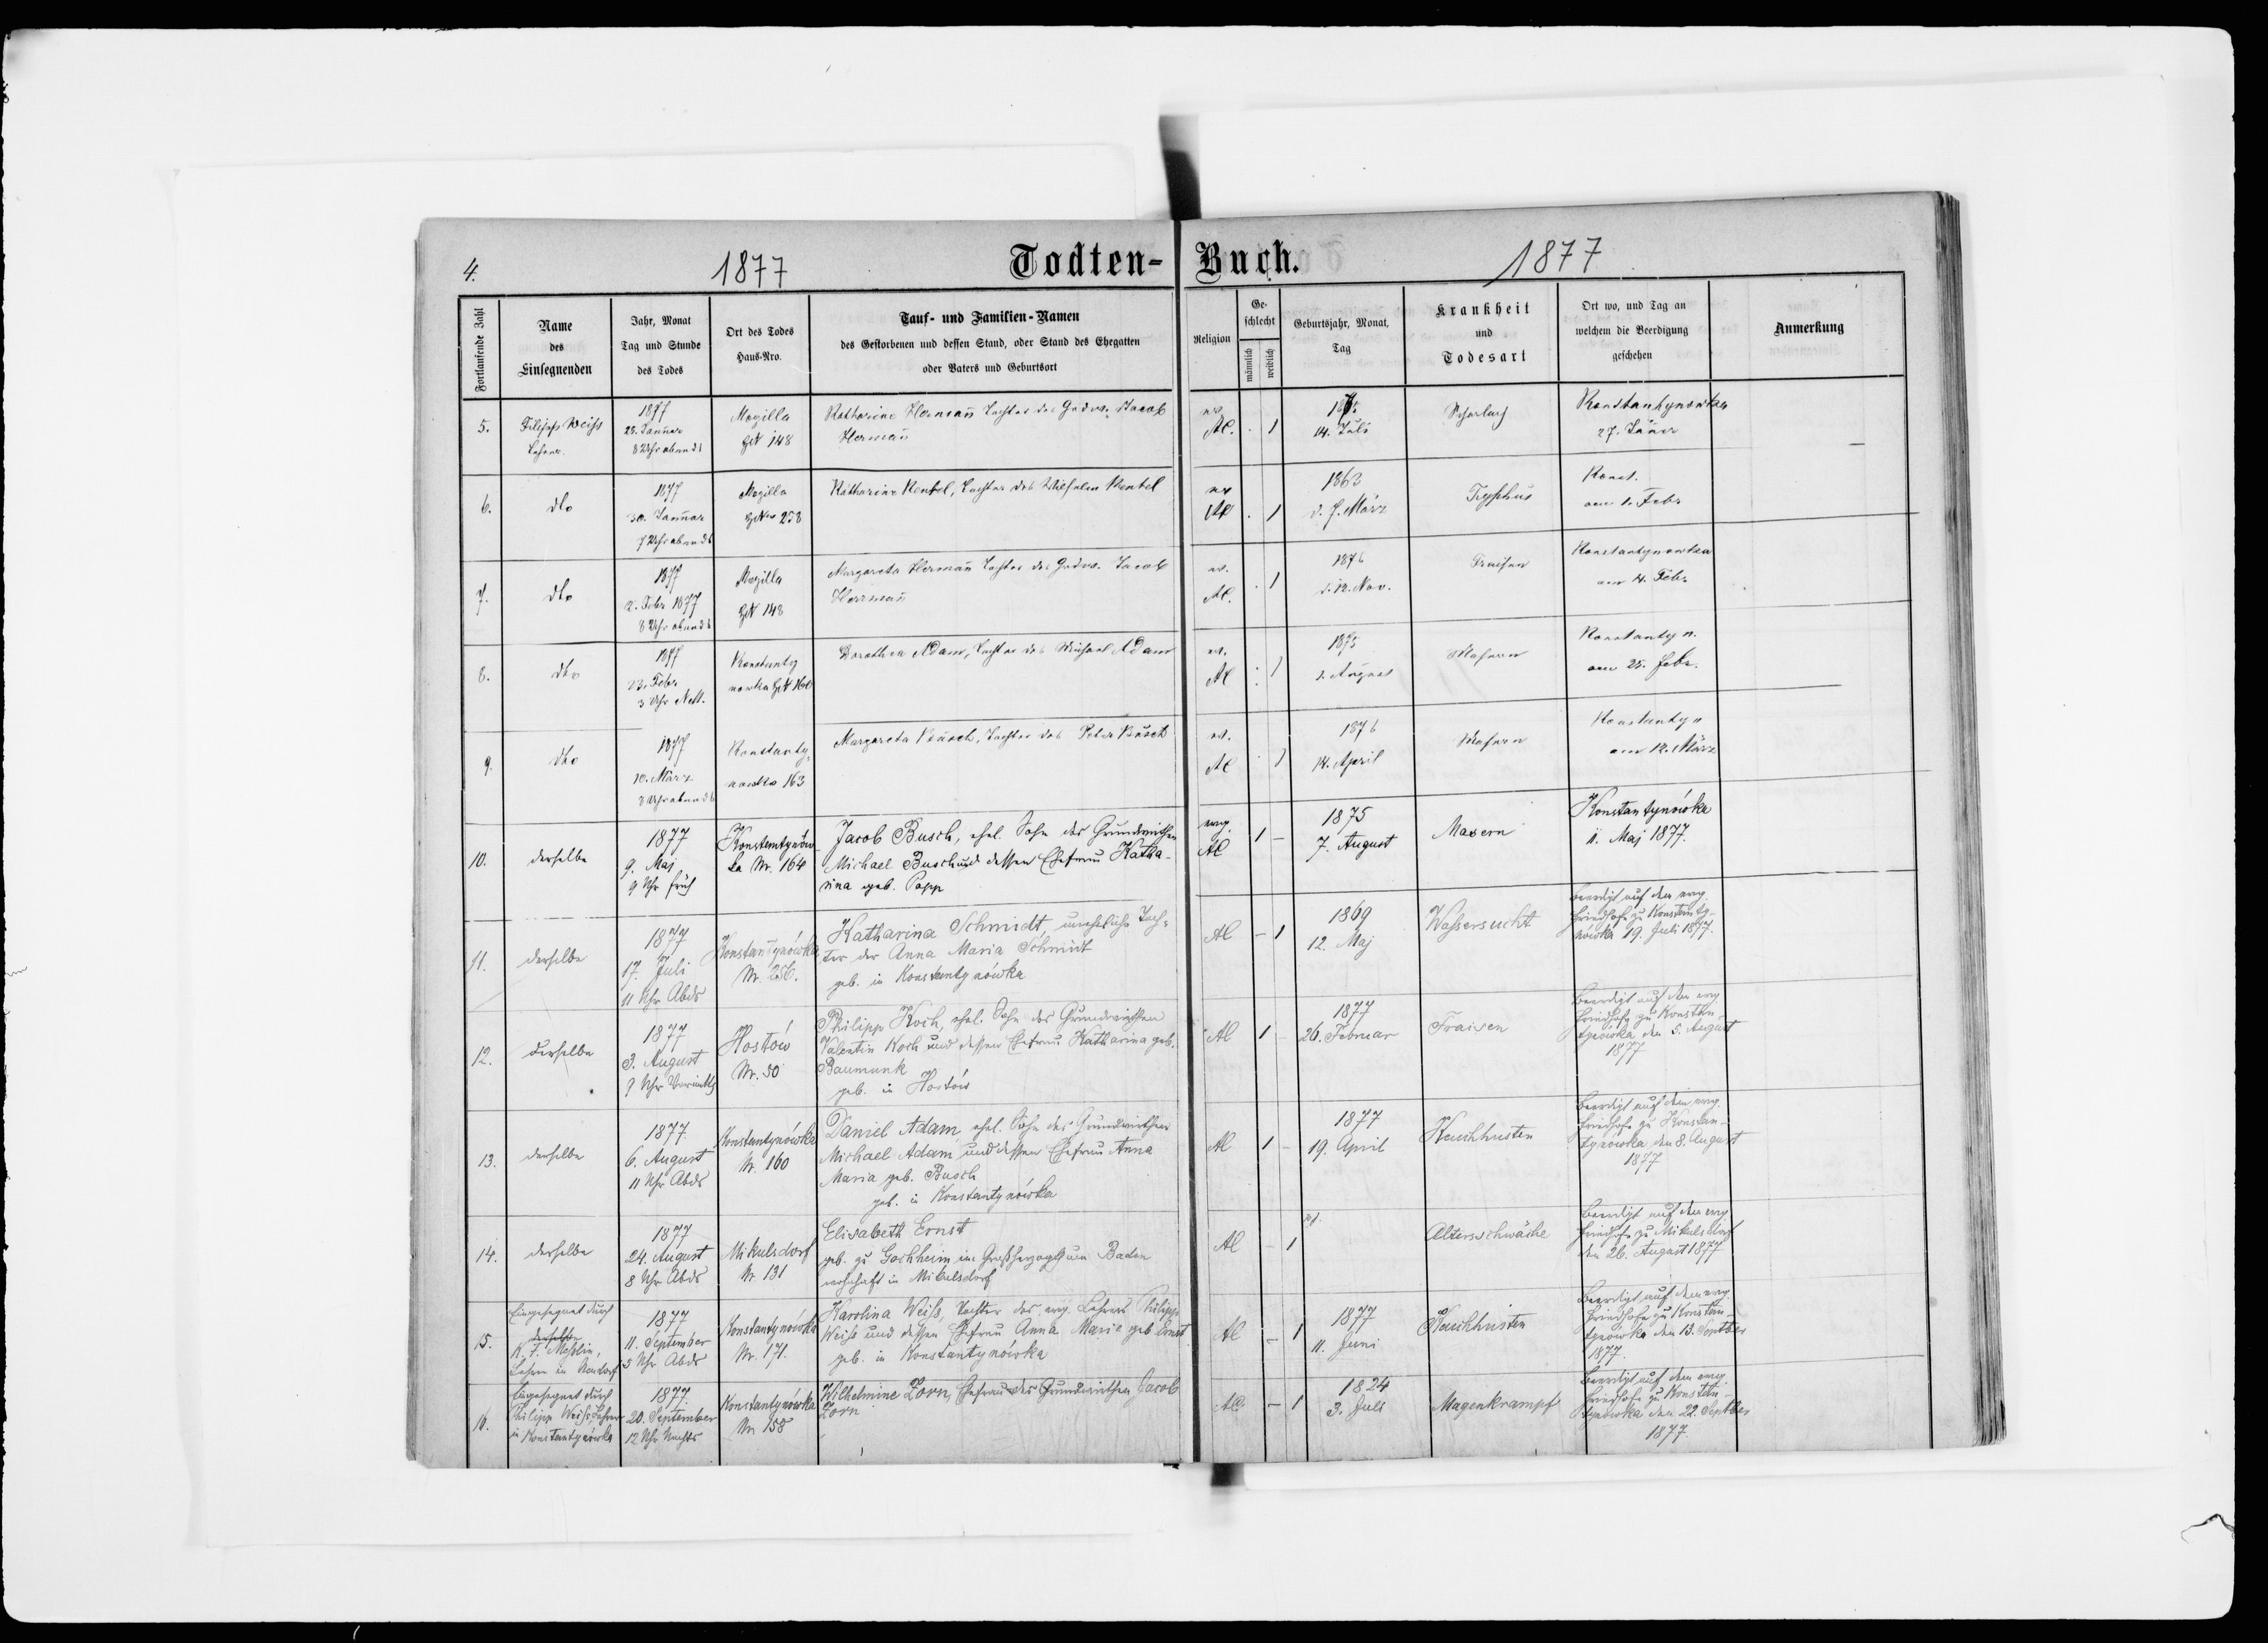 4.
1877
Todten-
Buch.
1877
Fortlaufende Zahl
Name
des
Einsegnenden
Jahr, Monat
Tag und Stunde
des Todes
Ort des Todes
Haus-Nro.
Tauf- und Familien-Namen
des Gestorbenen und dessen Stand, oder Stand des Ehegatten
oder Vaters und Geburtsort
Religion
Ge-
schlecht
männlich
weiblich
Geburtsjahr, Monat,
Tag
Krankheit
und
Todesart
Ort wo, und Tag an
welchem die Beerdigung
geschehen
Anmerkung
5.
Filipp Weiss
Lehrer.
1877
25. Januar
8 Uhr abends
Mogilla
148
Katharine Hermann Tochter des Jacob
Hermann
14. Juli
Scharlach
27. Jäner
6.
dto
1877
30. Januar
7 Uhr abends
Mogilla
258
Katharine Rentel, Tochter des Wilhelm Rentel
1863
März
Typhus
Konst.
am 1. Febr
7.
dto
1877
2. Febr 1877
8 Uhr abends
Mogilla
148
Margareta Hermann Tochter des Jacob
Herrmann
1876
12. Nov.
Fraisen
Konstantynowka
am 4. Febr
8.
dto
1877
23. Febr.
3 Uhr
Konstanty
nowka 160
Dorothea Adam, Tochter des Michael Adam
1875
August
Masern
Konstantyn.
am 25. Febr.
9.
dto
1877
10. März
Uhr abends
Konstanty=
nowka 163
Margareta Busch, Tochter des Peter Busch
1876
14. April
Masern
Konstantyn
am 12. März
10.
derselbe
1877
9. Maj
9 Uhr früh
Konstantynów-
ka Nr. 164
Jacob Busch, ehel. Sohn des Grundwirthen
Michael Busch und dessen Ehefrau Katha-
rina geb. Popp
evg.
Al
1 -
1875
7. August
Masern
Konstantynówka
11. Maj 1877.
11.
derselbe
1877
17. Juli
11 Uhr Abds
Konstantynówka
Nr. 256.
Katharina Schmidt, uneheliche Toch=
ter der Anna Maria Schmidt
geb. in Konstantynówka
Al
- 1
1869
12. Maj
Wassersucht
Beerdigt auf dem evg.
Friedhofe zu Konstanty-
nówka 19. Juli 1877.
12.
derselbe
1877
3. August
9 Uhr Vormittg
Hostów
Nr. 50
Philipp Koch, ehel. Sohn des Grundwirthen
Valentin Koch und dessen Ehefrau Katharina geb.
Baumunk
geb. in Hostów
Al
1 -
1877
26. Februar
Fraisen
Beerdigt auf dem evg
Friedhofe zu Konstan-
tynówka den 5. August
1877
13.
derselbe
1877.
6. August
11 Uhr Abds
Konstantynówka
Nr. 160
Daniel Adam, ehel. Sohn des Grundwirthen
Michael Adam und dessen Ehefrau Anna
Maria geb. Busch
geb. in Konstantynówka
Al
1 -
1877
19. April
Keuchhusten
Beerdigt auf dem evg.
Friedhofe zu Konstan-
tynówka den 8. August
1877
14.
derselbe
1877
24. August
8 Uhr Abds
Mikulsdorf
Nr. 131
Elisabeth Ernst
geb. zu Gochheim im Großherzogthum Baden
wohnhaft in Mikulsdorf
Al
- 1
Altersschwäche
Beerdigt auf dem evg
Friedhofe zu Mikulsdorf
den 26. August 1877
15.
Eingesegnet durch
derselbe
Lehrer in
1877
11. September
5 Uhr Abds
Konstantynówka
Nr. 171.
Karolina Weiß, Tochter des evg. Lehrers Philipp
Weiß und dessen Ehefrau Anna Maria geb Ernst
geb. in Konstantynówka
Al
- 1
1877
11. Juni
Keuchhusten
Beerdigt auf dem evg.
Friedhofe zu Konstan-
tynówka den 13. Septber
1877.
16.
Eingesegnet durch
Philipp Weiß, Lehrer
in Konstantynówka
1877.
20. September
12 Uhr Nachts
Konstantynówka
Nr 158
Wilhelmine Zorn, Ehefrau des Grundwirthen Jacob
Zorn
Al
- 1
1824
3. Juli
Magenkrampf
Beerdigt auf dem evg.
Friedhofe zu Konstan-
tynówka den 22. Septber
1877.